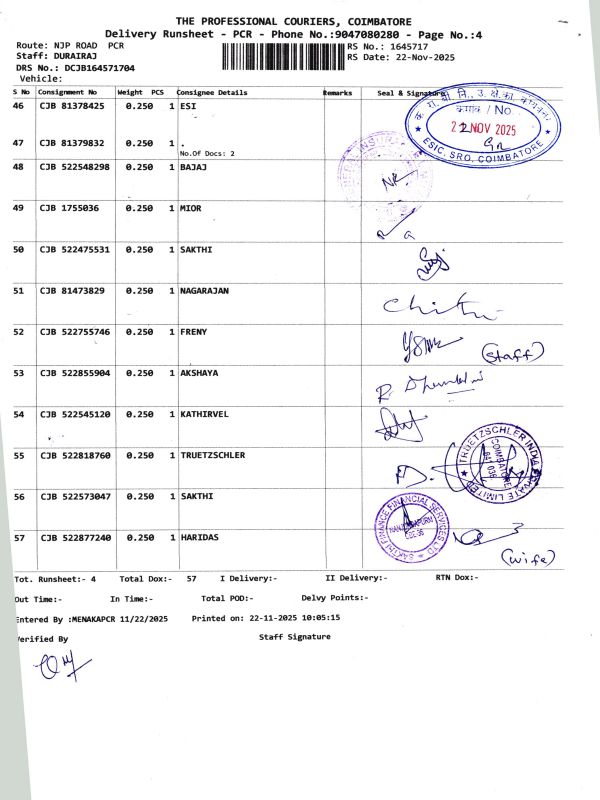 THE PROFESSIONAL COURIERS, COIMBATORE
Delivery Runsheet - PCR - Phone No.:9047080280 - Page No.:4
Route: NJP ROAD PCR
RS No.: 1645717
Staff: DURAIRAJ
RS Date: 22-Nov-2025
DRS No.: DCJB164571704
Vehicle:
S No Consignment No Weight PCS Consignee Details Remarks Seal & Signature
46 CJB 81378425 0.250 1 ESI
No.
22 NOV 2025
ESIC, SRO, COIMBATORE
47 CJB 81379832 0.250 1 .
No.Of Docs: 2
48 CJB 522548298 0.250 1 BAJAJ
49 CJB 1755036 0.250 1 MIOR
50 CJB 522475531 0.250 1 SAKTHI
51 CJB 81473829 0.250 1 NAGARAJAN
52 CJB 522755746 0.250 1 FRENY
(Staff)
53 CJB 522855904 0.250 1 AKSHAYA
54 CJB 522545120 0.250 1 KATHIRVEL
55 CJB 522818760 0.250 1 TRUETZSCHLER
TRUETZSCHLER INDIA PRIVATE LIMITED
COIMBATORE
56 CJB 522573047 0.250 1 SAKTHI
SAKTHI FINANCE FINANCIAL SERVICES LTD
57 CJB 522877240 0.250 1 HARIDAS
(wife)
Tot. Runsheet:- 4 Total Dox:- 57 I Delivery:- II Delivery:- RTN Dox:-
Out Time:- In Time:- Total POD:- Delvy Points:-
Entered By :MENAKAPCR 11/22/2025 Printed on: 22-11-2025 10:05:15
Verified By Staff Signature